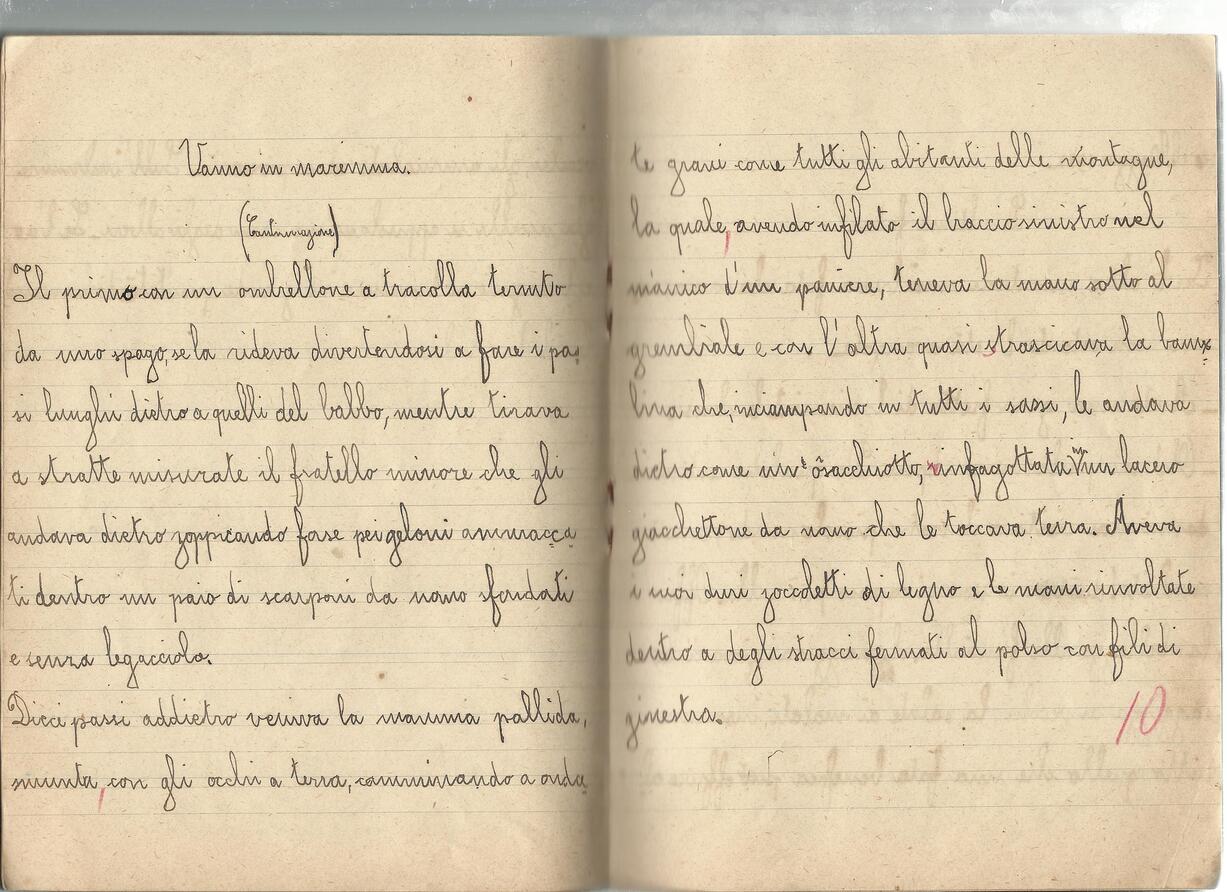 Vanno in maremma.
(Continuazione)
Il primo con un ombrellone a tracolla tenuto
da uno spago, se la rideva divertendosi a fare i pas
si lunghi dietro a quelli del babbo, mentre tirava
a stratte misurate il fratello minore che gli
andava dietro zoppicando forse pei geloni ammacca
ti dentro un paio di scarponi da uomo sfondati
e senza legacciolo.
Dieci passi addietro veniva la mamma pallida,
munta, con gli occhi a terra, camminando a onda
te gravi come tutti gli abitanti delle montagne,
la quale, avendo infilato il braccio sinistro nel
mànico d'un paniere, teneva la mano sotto al
grembiale e con l'altra quasi strascicava la bam
bina che, inciampando in tutti i sassi, le andava
dietro come un sacchiotto, infagottata in un lacero
giacchettone da uomo che le toccava terra. Aveva
i suoi duri zoccoletti di legno e le mani rinvoltate
dentro a degli stracci fermati al polso con fili di
ginestra.
10